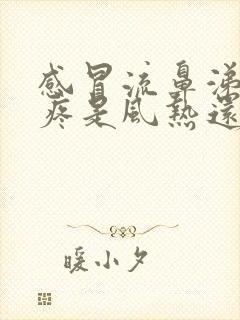 感冒流鼻涕
疼是風熱還
暖小夕